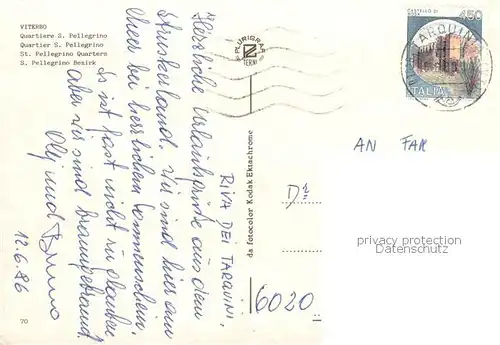 VITERBO
Quartiere S. Pellegrino
Quartier S. Pellegrino
St. Pellegrino Quartern
S. Pellegrino Bezirk
RIVA DEI TARQUINI,
Herrliche Urlaubsgrüße aus dem
Etruskerland. Wir sind hier am
Meer bei herrlichem Sonnenschein.
Es ist fast nicht zu glauben
aber wir sind braungebrannt.
Olj und Bruno
12.6.86
70
PLURIGRAF
TERNI
da fotocolor Kodak Ektachrome
CASTELLO DI
450
ITALIA
TARQUINIA
AN FAM
Dr
6020
privacy protection
Datenschutz